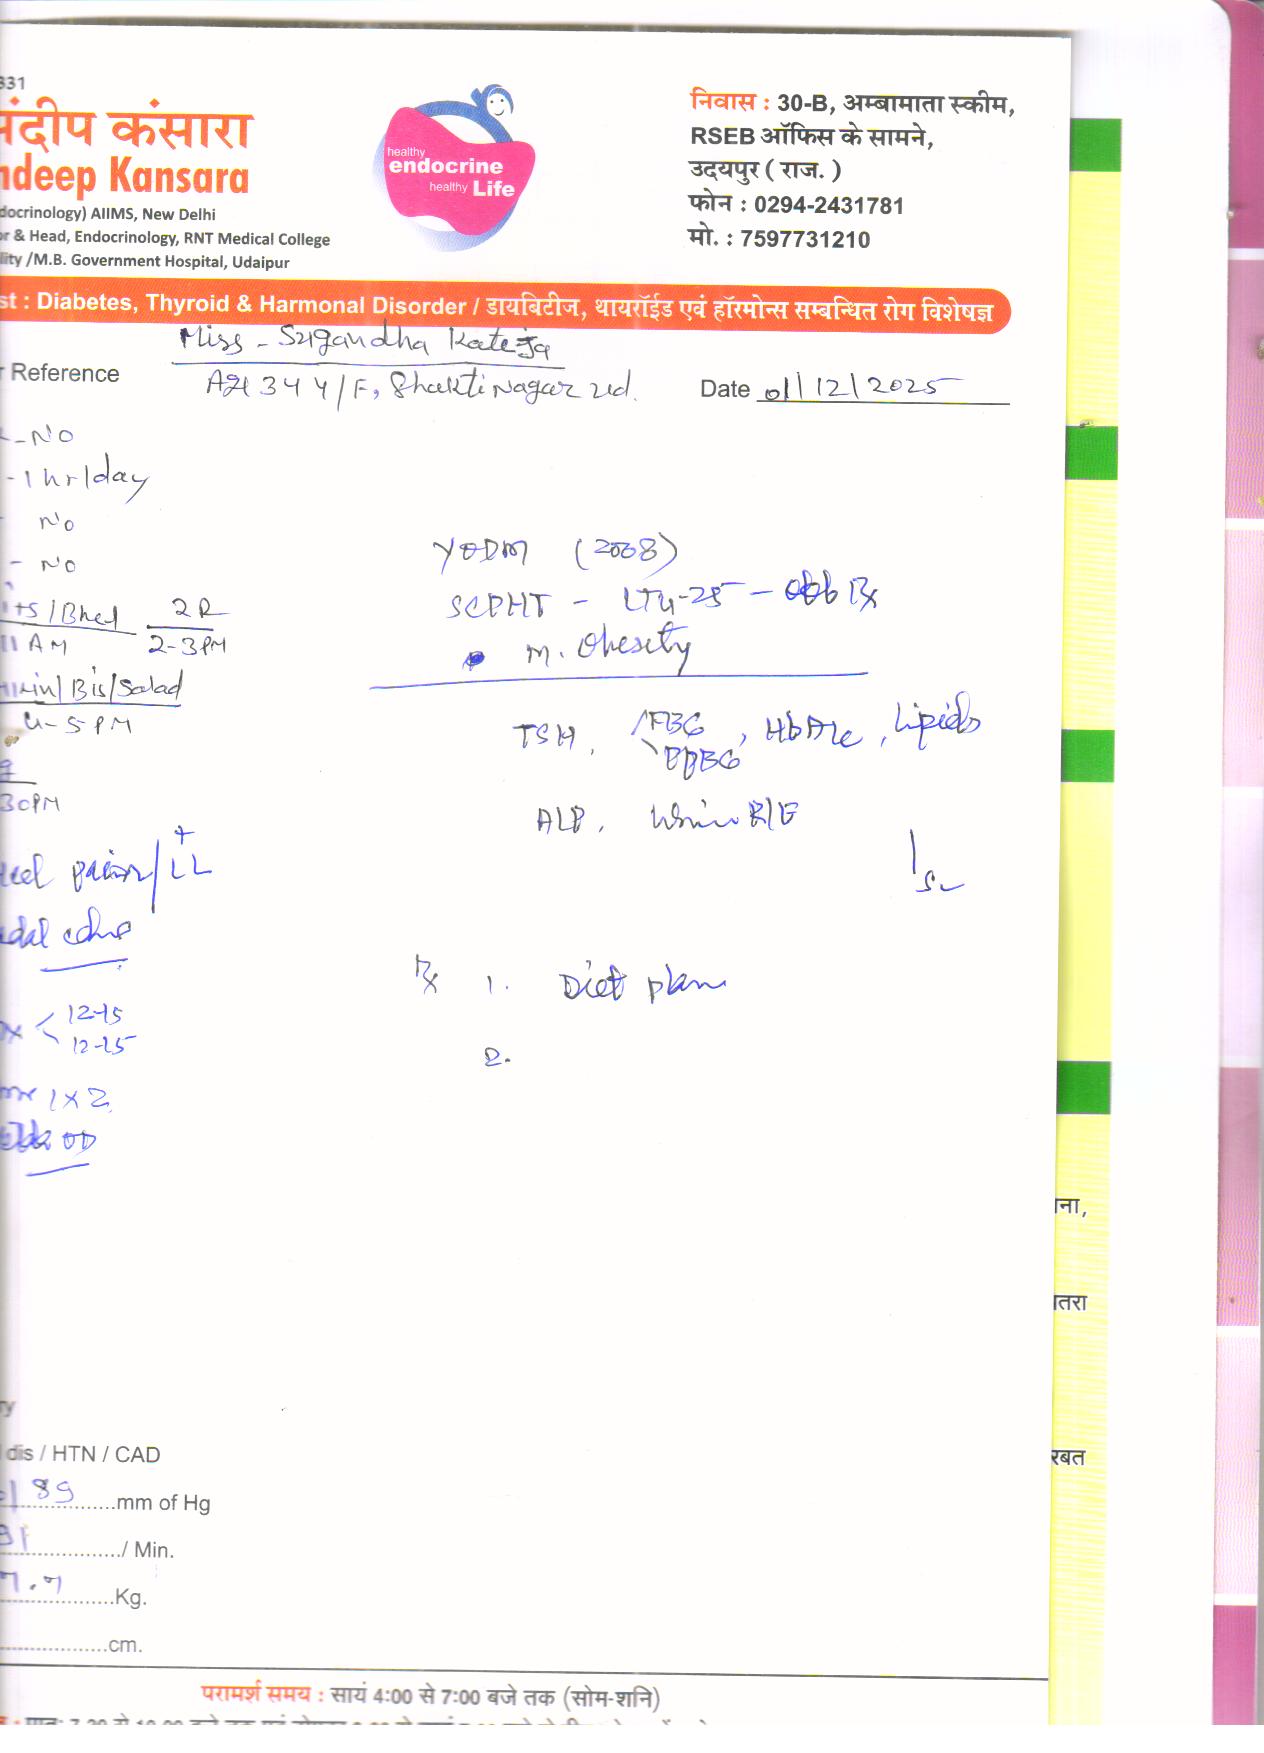 331
संदीप कंसारा
ndeep Kansara
docrinology) AIIMS, New Delhi
or & Head, Endocrinology, RNT Medical College
lity /M.B. Government Hospital, Udaipur
healthy
endocrine
healthy Life
निवास : 30-B, अम्बामाता स्कीम,
RSEB ऑफिस के सामने,
उदयपुर ( राज. )
फोन : 0294-2431781
मो. : 7597731210
st : Diabetes, Thyroid & Harmonal Disorder / डायबिटीज, थायरॉईड एवं हॉरमोन्स सम्बन्धित रोग विशेषज्ञ
Miss - Sugandha Kateja
r Reference
34 Y/F, Shakti Nagar ud.
Date 01/12/2025
- No
- 1 hr/day
- No
- No
/Bhel 2R
11 AM 2-3PM
/Bis/Salad
4-5 PM
30PM
heel pain/LL +
dal edema
12-15
12-25
1 x 2
OD
YODM (2008)
SCPHT - LT4-25 - off Rx
M. Obesity
TSH, FBG, HbA1c, Lipids
PPBG
ALP, Urine R/E
Rx 1. Diet plan
2.
ry
dis / HTN / CAD
/ 89 mm of Hg
91 / Min.
7.7 Kg.
cm.
ना,
तरा
रबत
परामर्श समय : सायं 4:00 से 7:00 बजे तक (सोम-शनि)